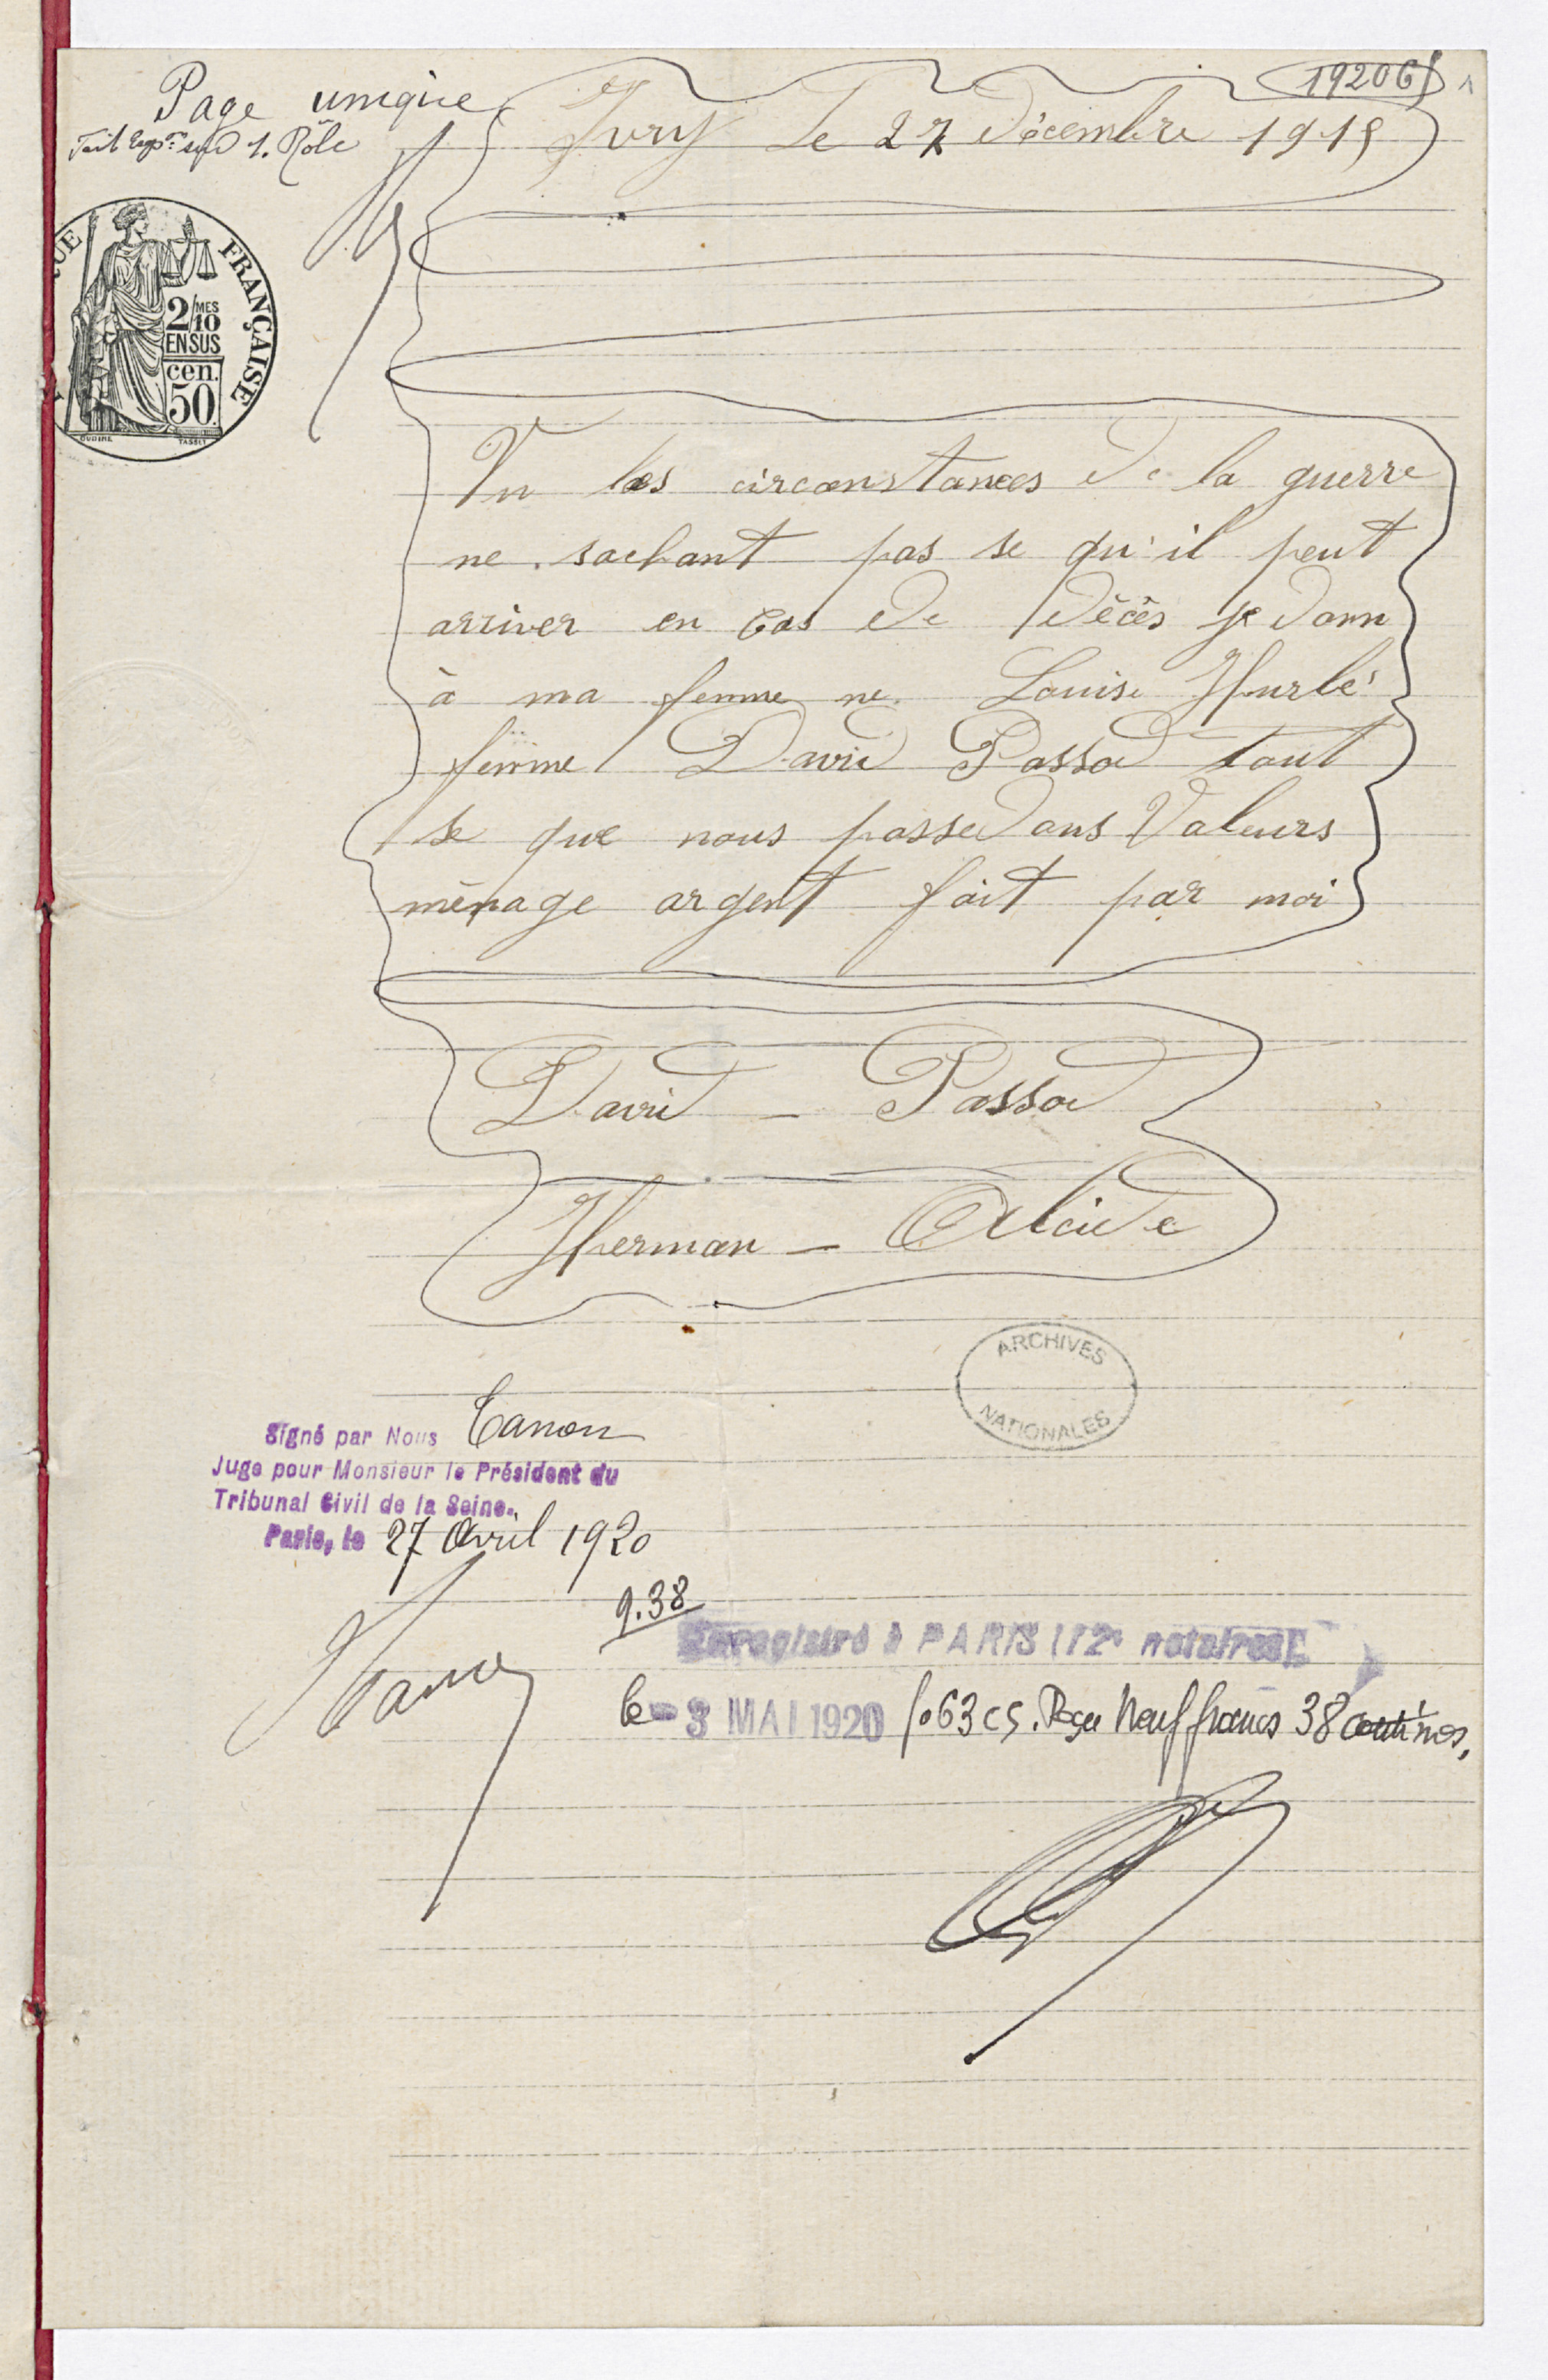 Page unique
Fait Exp.on sur 1. Rôle
192061
Ivry Le 27 Décembre 1915
QUE FRANÇAISE
2/MES
10
EN SUS
cen.
50
OUDINE TASSET
Vu les circonstances de la guerre
ne sachant pas se qu'il peut
arriver en cas de décès je donn
à ma femme ne Louise Hurlé
femme David Passad tout
se que nous possedons Valeurs
ménage argent fait par moi
David - Passad
Herman - Alcide
ARCHIVES
NATIONALES
Signé par Nous Tanon
Juge pour Monsieur le Président du
Tribunal Civil de la Seine.
Paris, le 27 Avril 1920
9.38
Enregistré à PARIS (12e notaires)
le - 3 MAI 1920 fo 63 c5. Reçu Neuf francs 38 centimes.